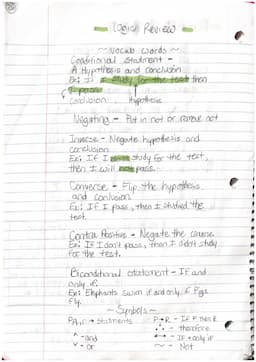 Logic Review
~ Vocab words ~
Conditional Statment -
A Hypothesis and conclusion
Ex: If I study for the test then
I pass.
Conclusion Hypothesis
Negating - Put in not or remove not
Inverse - Negate hypothesis and
conclusion.
Ex: If I study for the test,
then I will not pass.
Converse - Flip the hypothesis
and conclusion.
Ex: If I pass, then I studied the
test.
Contra Positive - Negate the converse
Ex: If I don't pass, then I didn't study
for the test.
Biconditional statement - If and
only if.
Ex: Elephants swim if and only if Pigs
fly.
~ Symbols ~
P, q, r → Statments P→R - If P then R
∴ - therefore
^ - and ↔ - If + only if
v - or ~ - Not